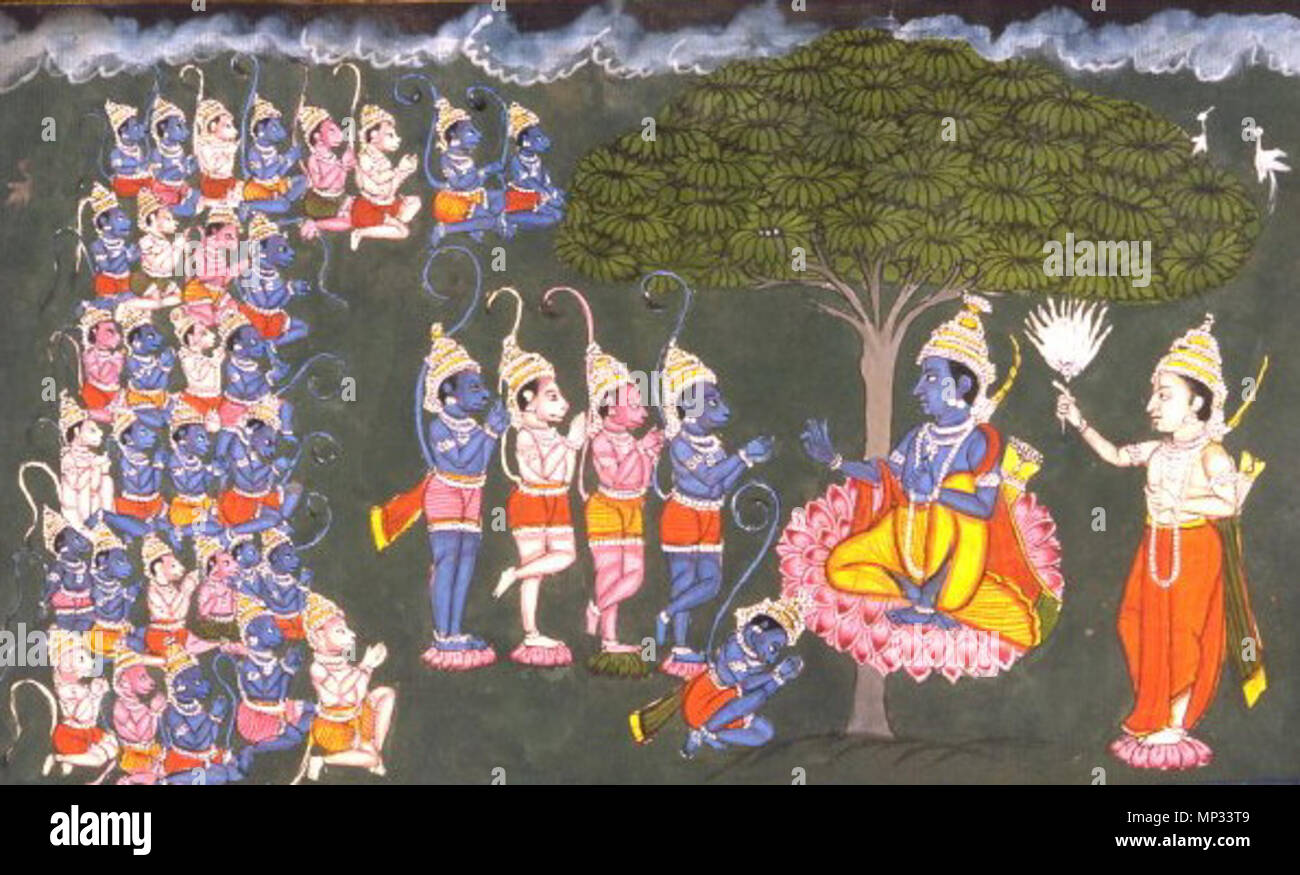 alamy
Image ID: MP33T9
www.alamy.com